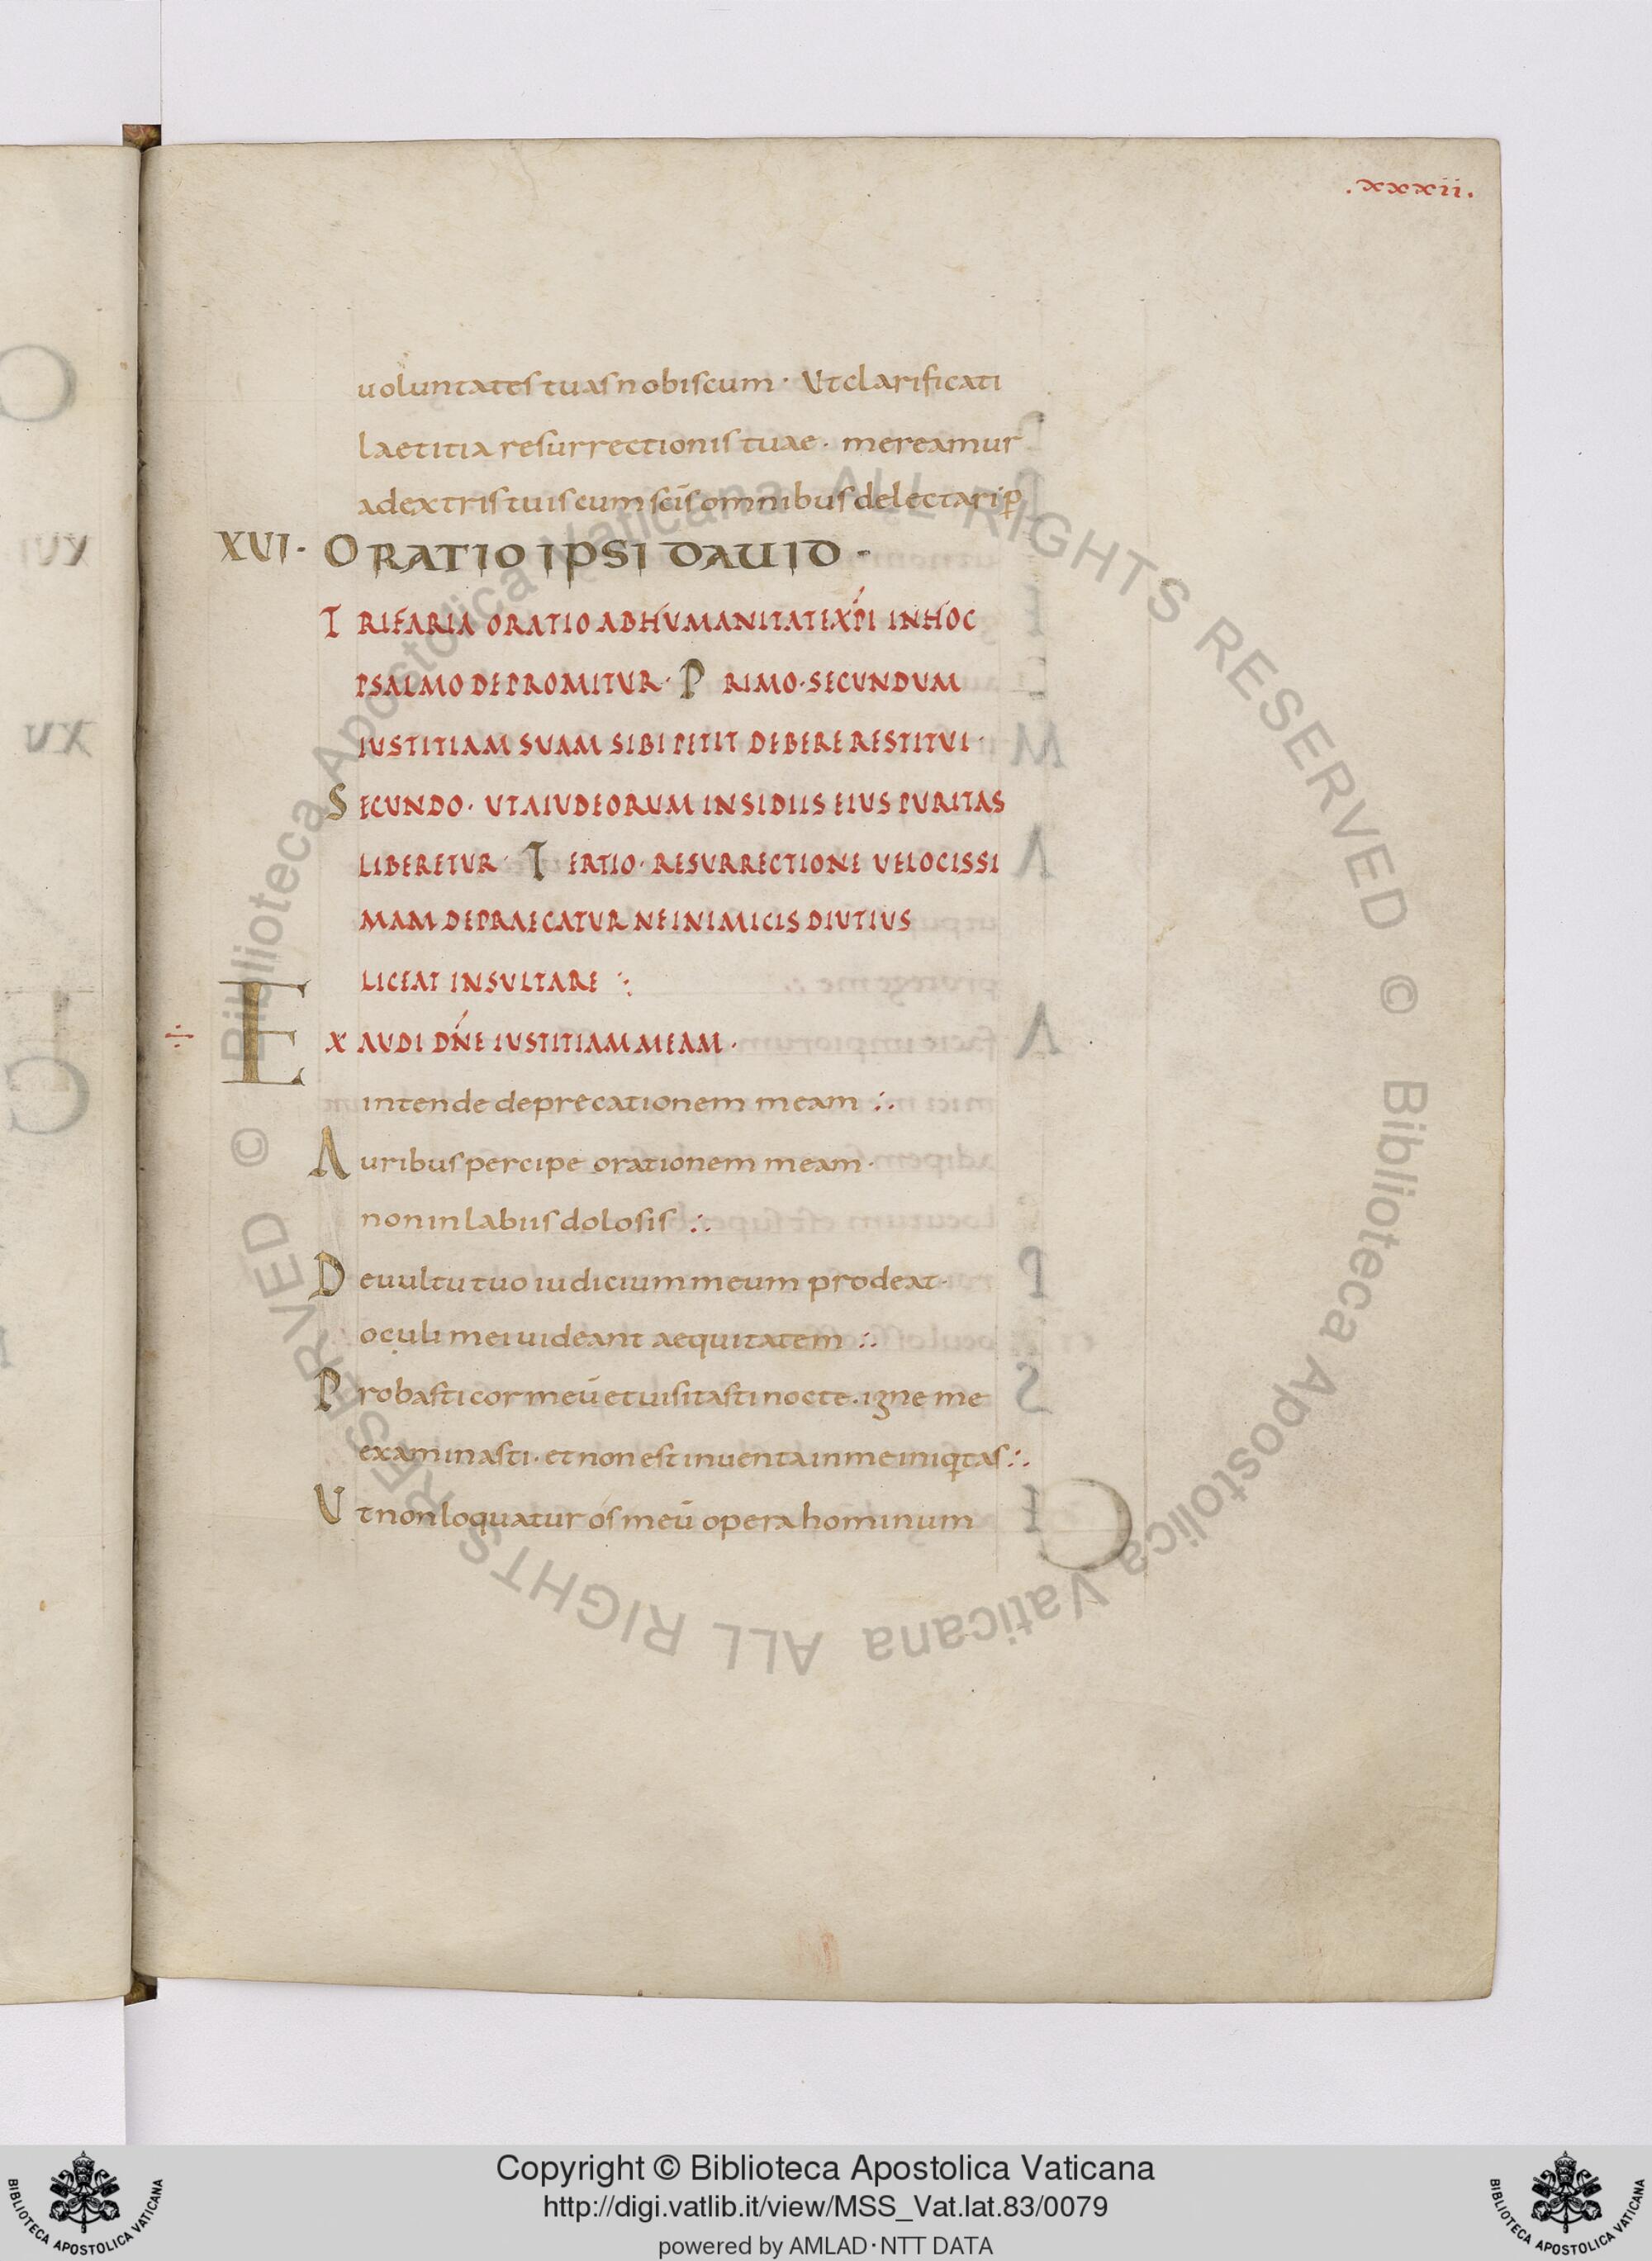 .xxxii.
uoluntates tuas nobiscum · Ut clarificati
laetitia resurrectionis tuae · mereamur
adextris tuis cum scīs omnibus delectari p̱
XVI · ORATIO IPSI DAUID ·
TRIFARIA ORATIO AB HUMANITATE XPI IN HOC
PSALMO DEPROMITUR · PRIMO · SECUNDUM
IUSTITIAM SUAM SIBI PETIT DEBERE RESTITUI ·
SECUNDO · UT A IUDEORUM INSIDIIS EIUS PURITAS
LIBERETUR · TERTIO · RESURRECTIONE VELOCISSI
MAM DEPRAECATUR NE INIMICIS DIUTIUS
LICEAT INSULTARE :·
÷ EXAUDI DNE IUSTITIAM MEAM ·
intende deprecationem meam :·
Auribus percipe orationem meam ·
non in labiis dolosis :·
De uultu tuo iudicium meum prodeat ·
oculi mei uideant aequitatem :·
Probasti cor meū et uisitasti nocte · igne me
examinasti · et non est inuenta in me iniqtas :·
Ut non loquatur os meū opera hominum
XVI
XV
© Biblioteca Apostolica Vaticana ALL RIGHTS RESERVED © Biblioteca Apostolica Vaticana ALL RIGHTS RESERVED
Copyright © Biblioteca Apostolica Vaticana
http://digi.vatlib.it/view/MSS_Vat.lat.83/0079
powered by AMLAD·NTT DATA
BIBLIOTECA APOSTOLICA VATICANA
BIBLIOTECA APOSTOLICA VATICANA